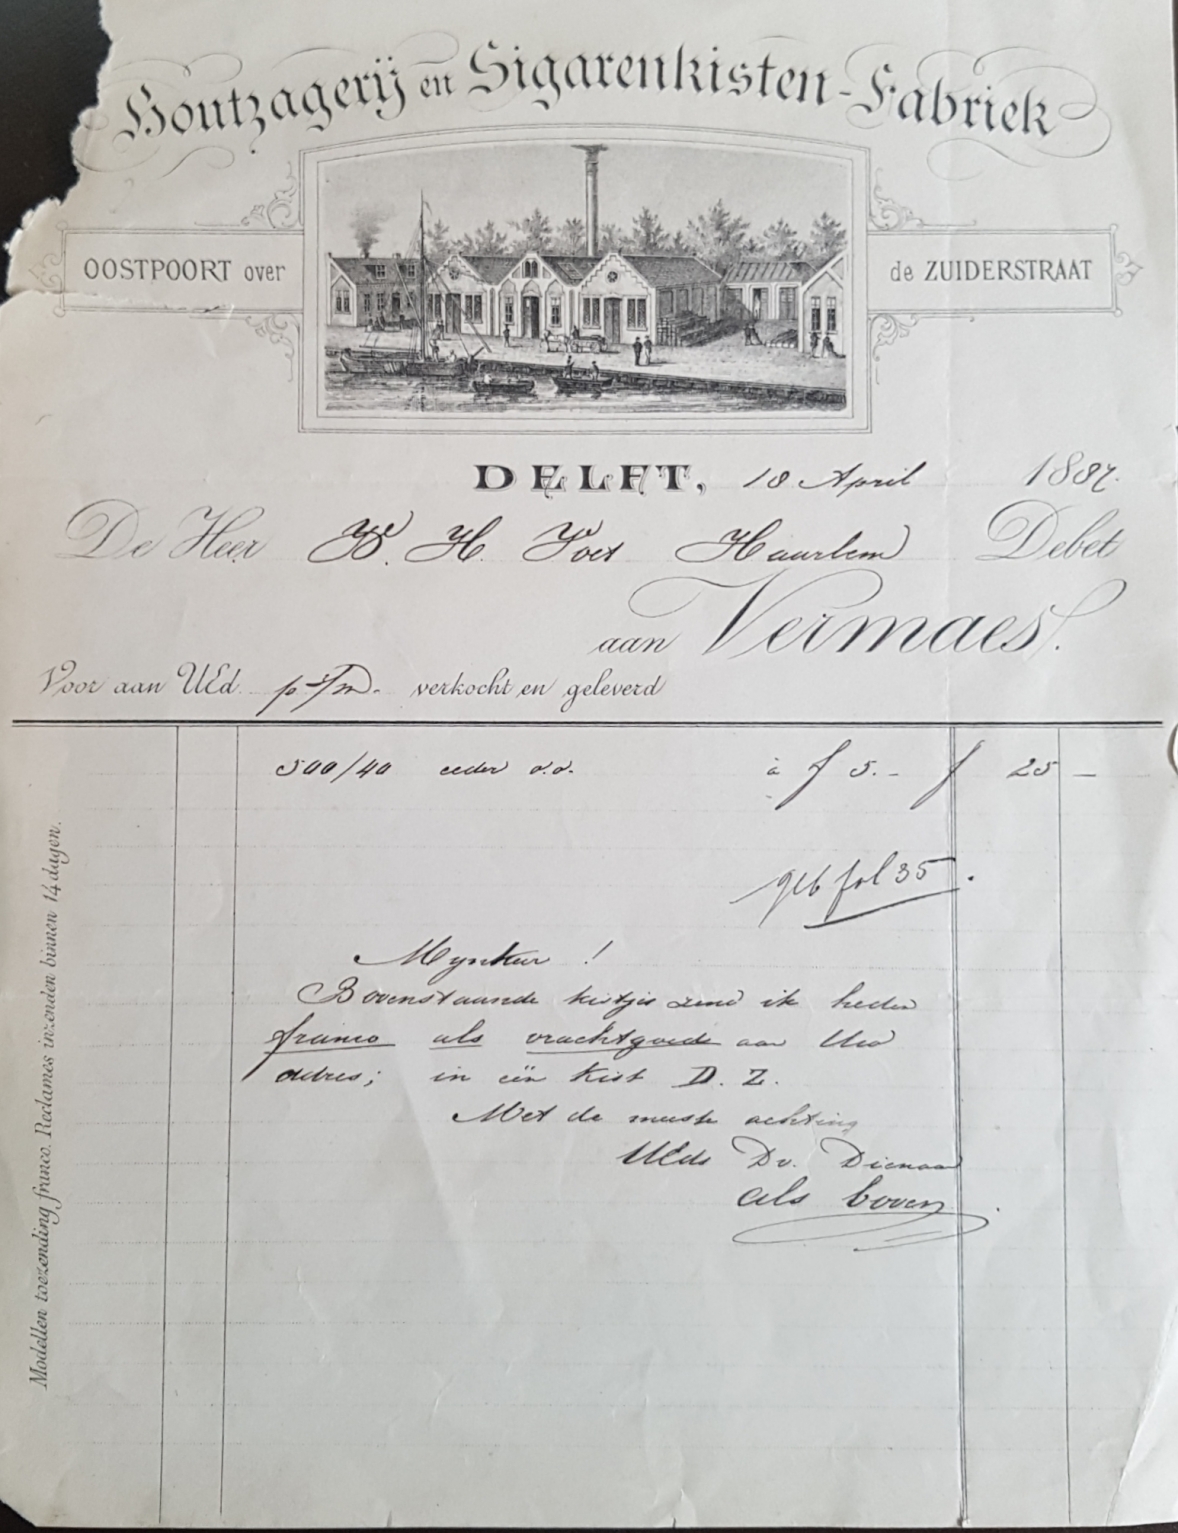 Houtzagerij en Sigarenkisten-Fabriek
OOSTPOORT over de ZUIDERSTRAAT
DELFT, 18 April 1887.
De Heer W. H. Voet Haarlem Debet
aan Vermaes.
Voor aan UEd. p 3/m. verkocht en geleverd
500/40 ceder d.d. à f 5.- f 25 -
geb fol 35.
Mynheer !
Bovenstaande kistjes zend ik heden
franco als vrachtgoed aan Uw
adres; in één Kist D. Z.
Met de meeste achting
UEds Dv. Dienaar
als boven.
Modellen toezending franco. Reclames inzenden binnen 14 dagen.